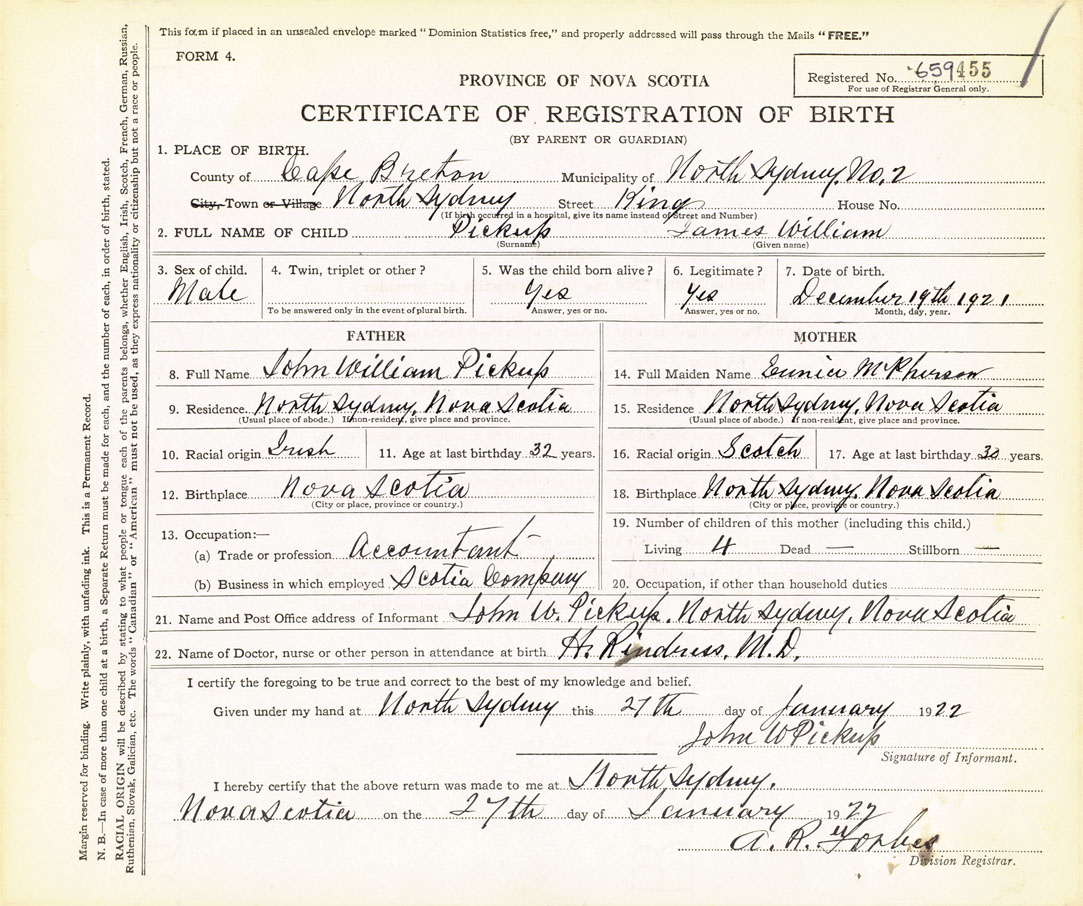 This form if placed in an unsealed envelope marked "Dominion Statistics free," and properly addressed will pass through the Mails "FREE."
FORM 4.
Registered No. 659455
For use of Registrar General only.
PROVINCE OF NOVA SCOTIA
CERTIFICATE OF REGISTRATION OF BIRTH
(BY PARENT OR GUARDIAN)
1. PLACE OF BIRTH.
County of Cape Breton Municipality of North Sydney, No. 2
City, Town or Village North Sydney Street King House No.
(If birth occurred in a hospital, give its name instead of Street and Number)
2. FULL NAME OF CHILD Pickup James William
(Surname) (Given name)
3. Sex of child. 4. Twin, triplet or other? 5. Was the child born alive? 6. Legitimate? 7. Date of birth.
Male Yes Yes December 19th 1921
To be answered only in the event of plural birth. Answer, yes or no. Answer, yes or no. Month, day, year.
FATHER MOTHER
8. Full Name John William Pickup 14. Full Maiden Name Eunice McPherson
9. Residence. North Sydney, Nova Scotia 15. Residence North Sydney, Nova Scotia
(Usual place of abode.) If non-resident, give place and province. (Usual place of abode.) If non-resident, give place and province.
10. Racial origin Irish 11. Age at last birthday 32 years. 16. Racial origin Scotch 17. Age at last birthday 30 years.
12. Birthplace Nova Scotia 18. Birthplace North Sydney, Nova Scotia
(City or place, province or country.) (City or place, province or country.)
13. Occupation:— 19. Number of children of this mother (including this child.)
(a) Trade or profession Accountant Living 4 Dead — Stillborn —
(b) Business in which employed Scotia Company 20. Occupation, if other than household duties
21. Name and Post Office address of Informant John W. Pickup, North Sydney, Nova Scotia
22. Name of Doctor, nurse or other person in attendance at birth H. Rindress, M.D.
I certify the foregoing to be true and correct to the best of my knowledge and belief.
Given under my hand at North Sydney this 27th day of January 1922
John W Pickup
Signature of Informant.
I hereby certify that the above return was made to me at North Sydney,
Nova Scotia on the 27th day of January 1922
A. R. Forbes
Division Registrar.
Margin reserved for binding. Write plainly, with unfading ink. This is a Permanent Record.
N. B.—In case of more than one child at a birth, a Separate Return must be made for each, and the number of each, in order of birth, stated.
RACIAL ORIGIN will be described by stating to what people or tongue each of the parents belongs, whether English, Irish, Scotch, French, German, Russian,
Ruthenian, Slovak, Galician, etc. The words "Canadian" or "American" must not be used, as they express nationality or citizenship but not a race or people.